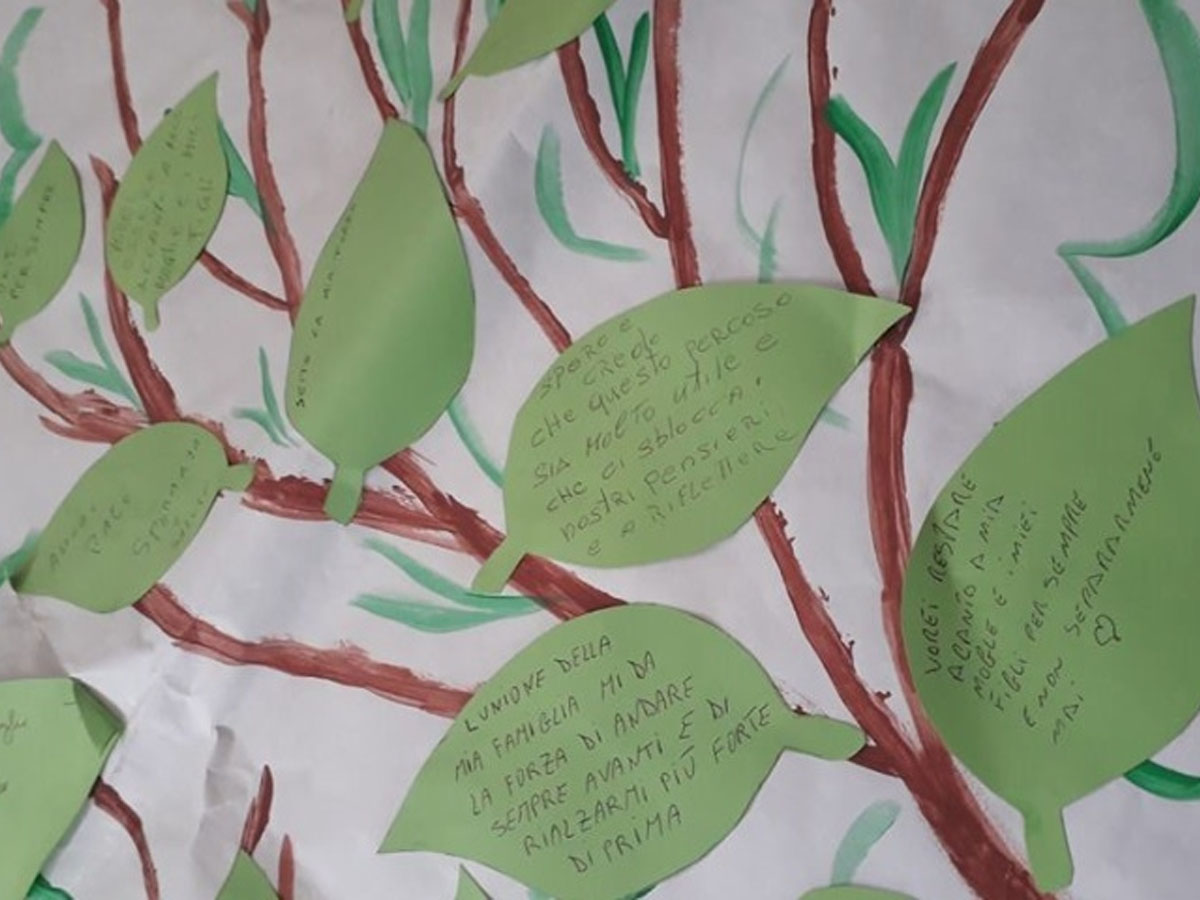 PER SEMPRE
MOGLIE E I MIEI
FIGLI
SENTO LA MIA
SPERO E
CREDO
CHE QUESTO PERCOSO
SIA MOLTO UTILE E
CHE CI SBLOCCA I
NOSTRI PENSIERI
E A RIFLETTERE
PACE
SPERANZA
L'UNIONE DELLA
MIA FAMIGLIA MI DA
LA FORZA DI ANDARE
SEMPRE AVANTI E DI
RIALZARMI PIÙ FORTE
DI PRIMA
VOREI RESTARE
ACANTO A MIA
MOGLE E I MIEI
FIGLI PER SEMPRE
E NON SEPARARMENE
MAI